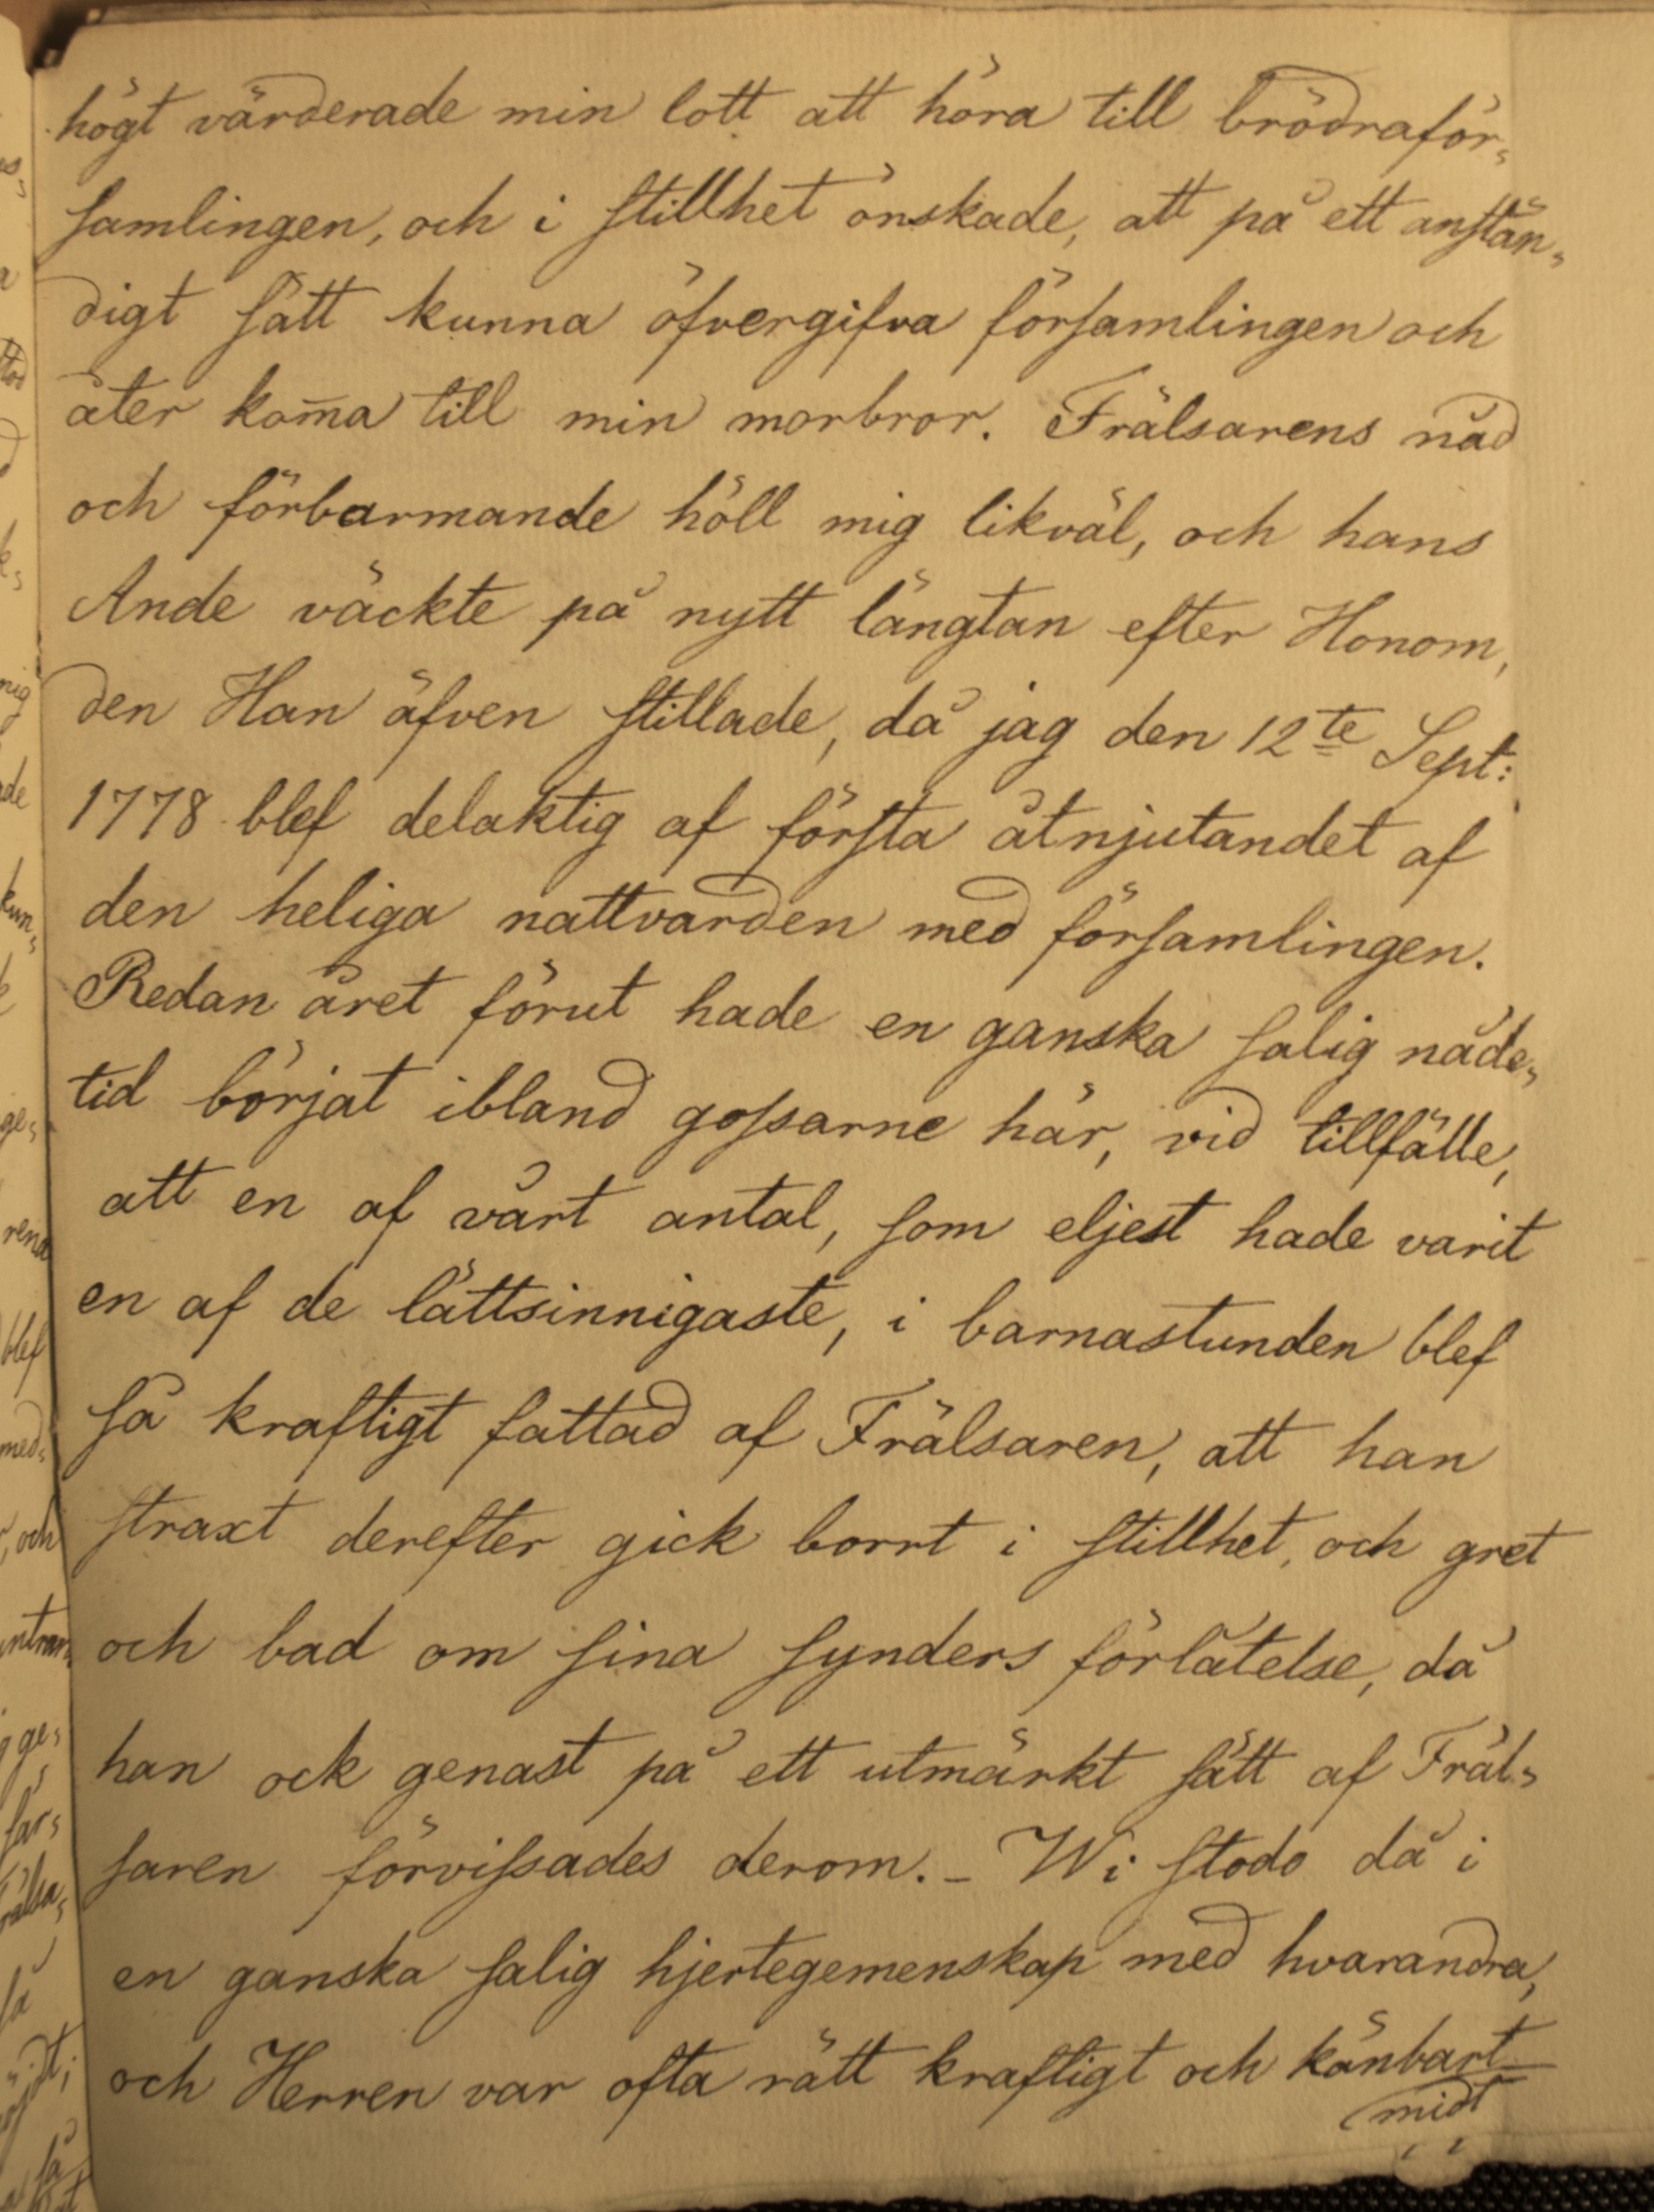 högt värderade min lott att höra till brödraför-
samlingen, och i stillhet önskade, att på ett anstän-
digt sätt kunna öfvergifva församlingen och
åter kom̄a till min morbror. Frälsarens nåd
och förbarmande höll mig likväl, och hans
Ande väckte på nytt längtan efter Honom,
den Han äfven stillade, då jag den 12te Sept:
1778 blef delaktig af första åtnjutandet af
den heliga nattvarden med församlingen.
Redan året förut hade en ganska salig nåde-
tid börjat ibland gossarne här, vid tillfälle,
att en af vårt antal, som eljest hade varit
en af de lättsinnigaste, i barnastunden blef
så kraftigt fattad af Frälsaren, att han
straxt derefter gick borrt i stillhet, och gret
och bad om sina synders förlåtelse, då
han ock genast på ett utmärkt sätt af Fräl-
saren förvissades derom. – Wi stodo då i
en ganska salig hjertegemenskap med hvarandra,
och Herren var ofta rätt kraftigt och känbart
midt